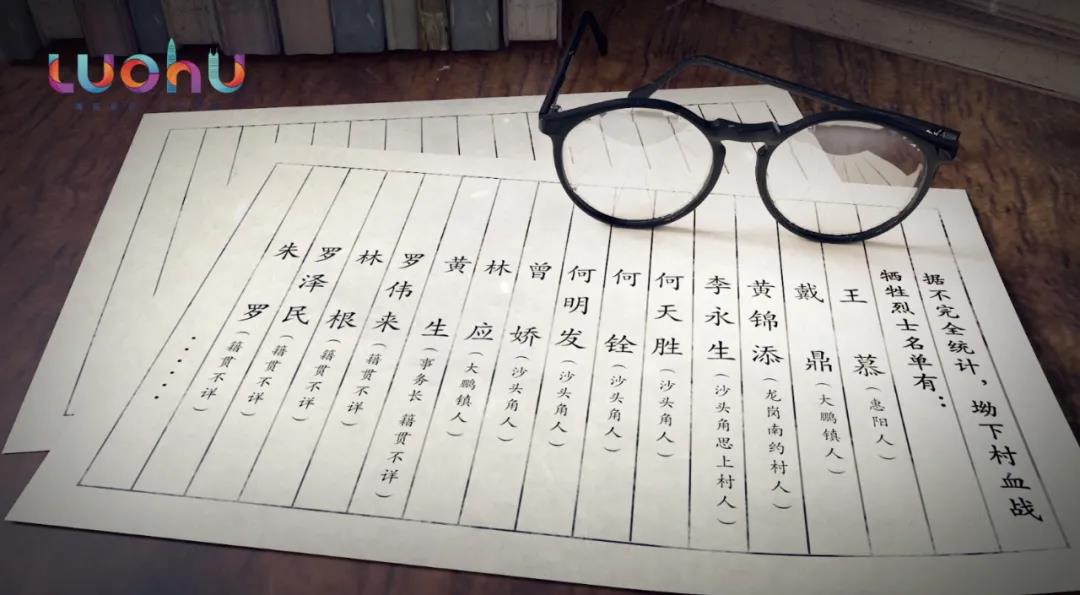 LUOHU
据不完全统计，坳下村血战
牺牲烈士名单有：
王慕（惠阳人）
戴鼎（大鹏镇人）
黄锦添（龙岗南约村人）
李永生（沙头角思上村人）
何天胜（沙头角人）
何铨（沙头角人）
何明发（沙头角人）
曾娇（沙头角人）
林应（大鹏镇人）
黄生（事务长 籍贯不详）
罗伟来（籍贯不详）
林根（籍贯不详）
罗泽民（籍贯不详）
朱罗（籍贯不详）
······